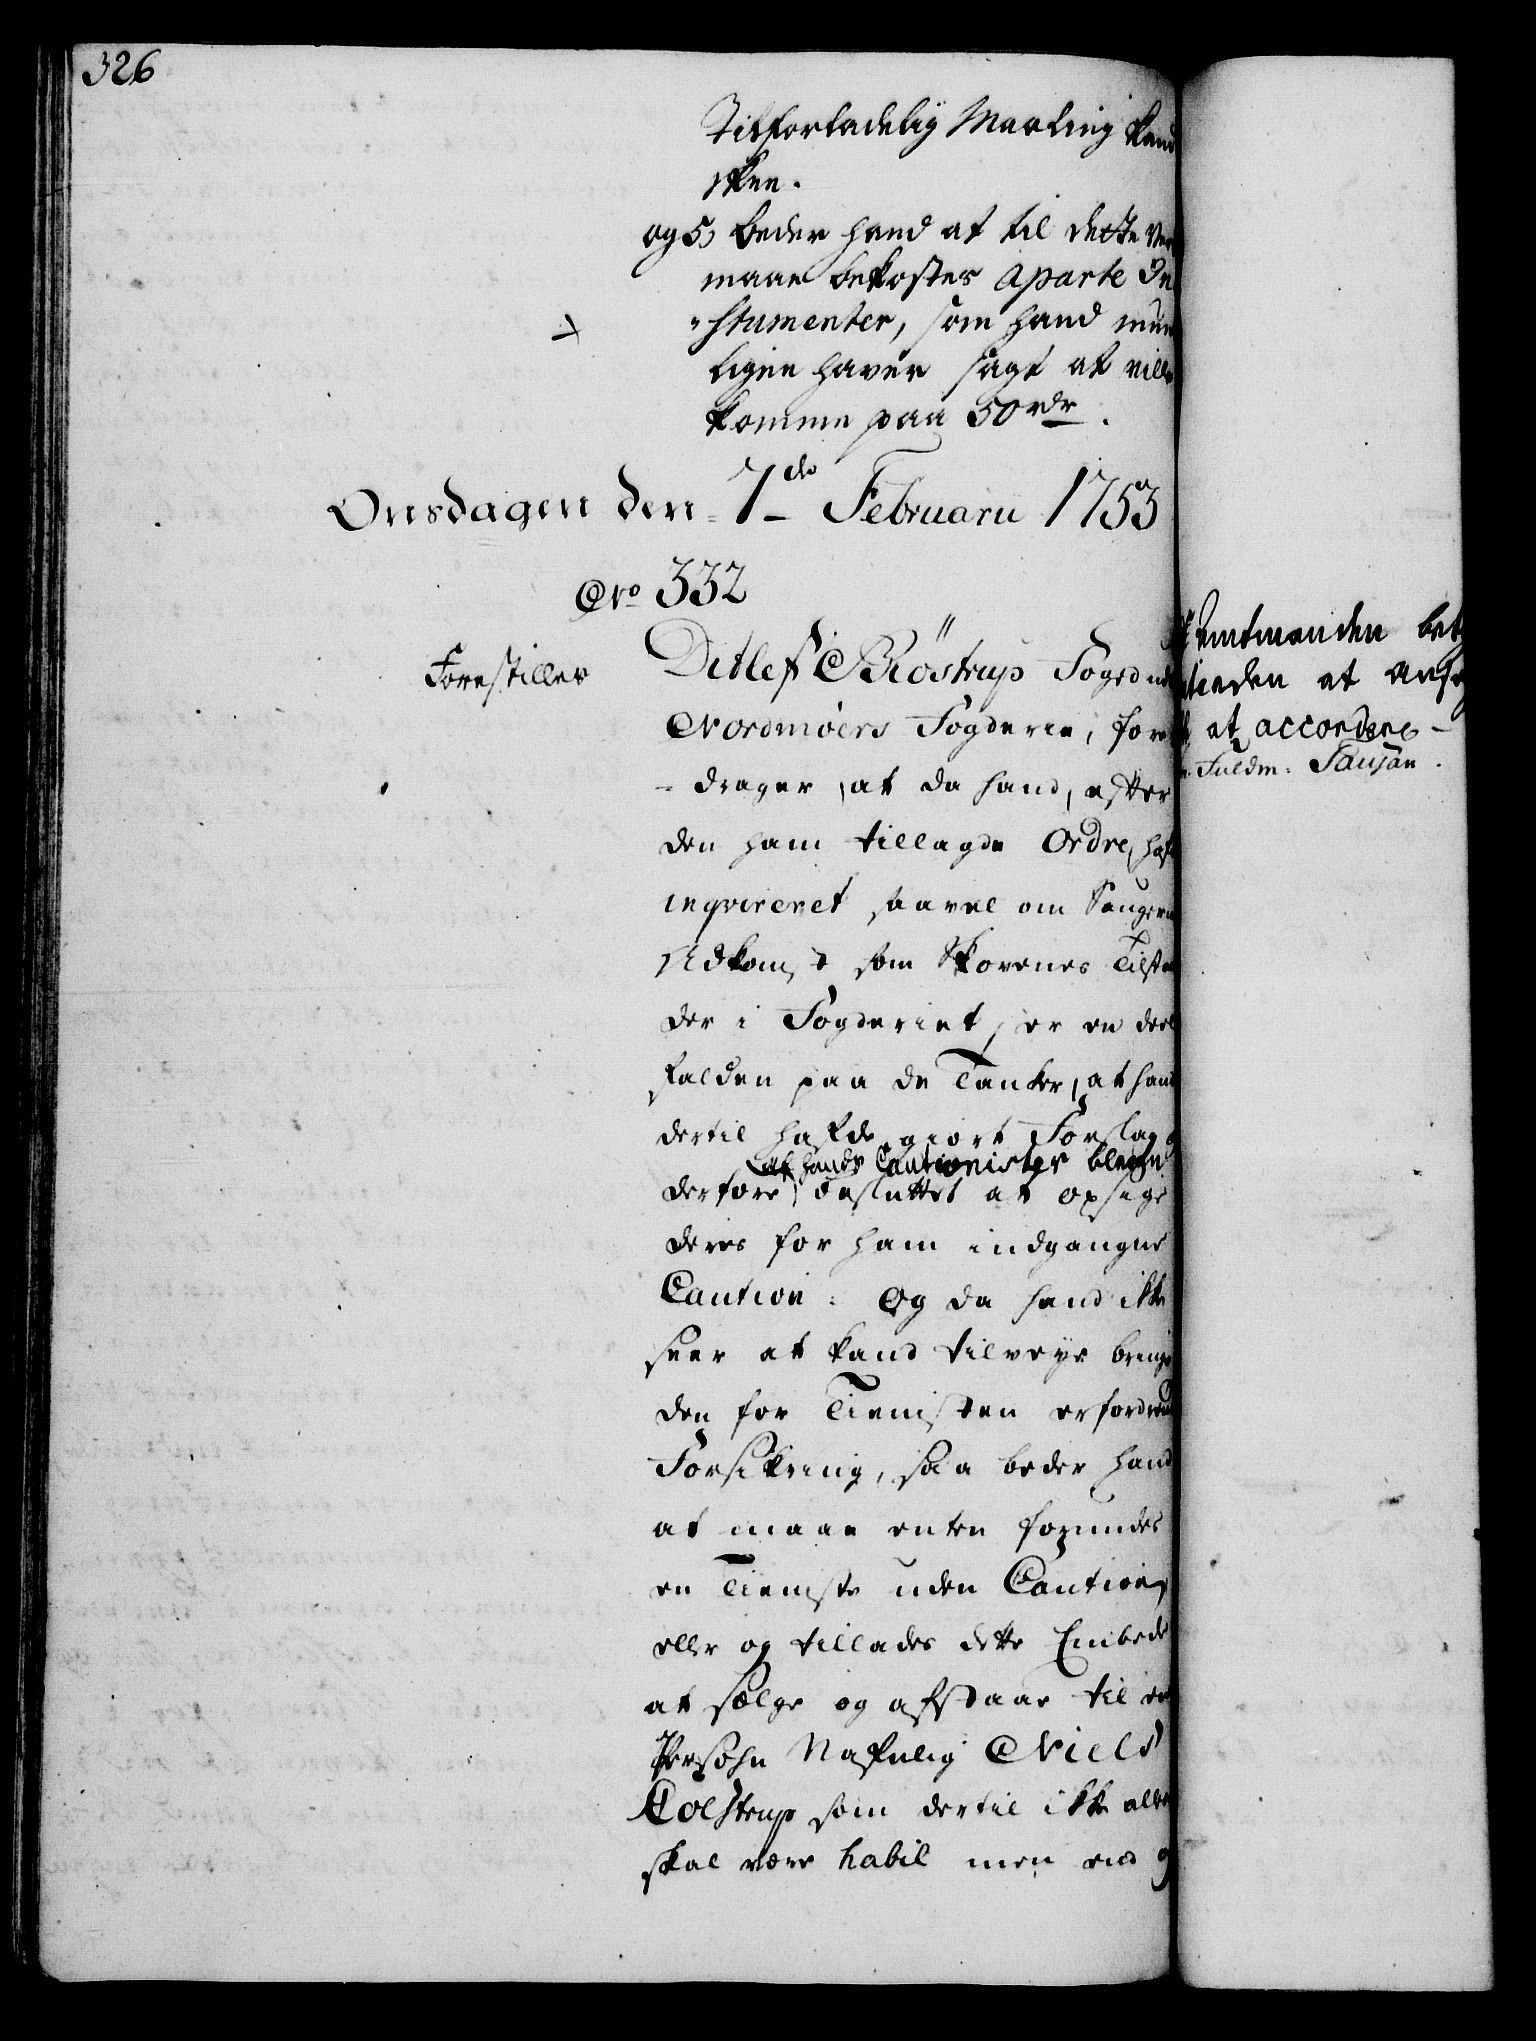 326
Tilforladelig Maaling kand
skee.
og 5, beder hand at til dette
maae bekostes aparte In
"stumenter, som hand mun
ligen haver sagt at ville
komme paa 50 rdr.
Onsdagen den 7de Februarii 1753
No 332
Forestiller
Ditlef Röstrup Foged
Nordmöers Fogderie, fore
- drager, at da hand, efter
den ham tillagde Ordre, haf
inqvireret saavel om Saugern
Udkomst som Skovenes Tilstan
der i Fogderiet, er en deel
falden paa de Tanker, at hand
dertil hafde giort Forslag
af hands Cautionister blevne
derfore besluttet at opsige
deres for ham indgangne
Caution. Og da hand ikke
seer at kand tilveye bringe
den for Tienisten erfordrende
Forsikring, saa beder hand
at maae enten forundes
en Tieniste uden Caution,
eller og tillades dette Embede
at sælge og afstaae til en
Persohn Nafnlig Niels
Colstrup som dertil ikke allee
skal være habil men end
Amtmanden bet
at
at accordere -
Fuldm: